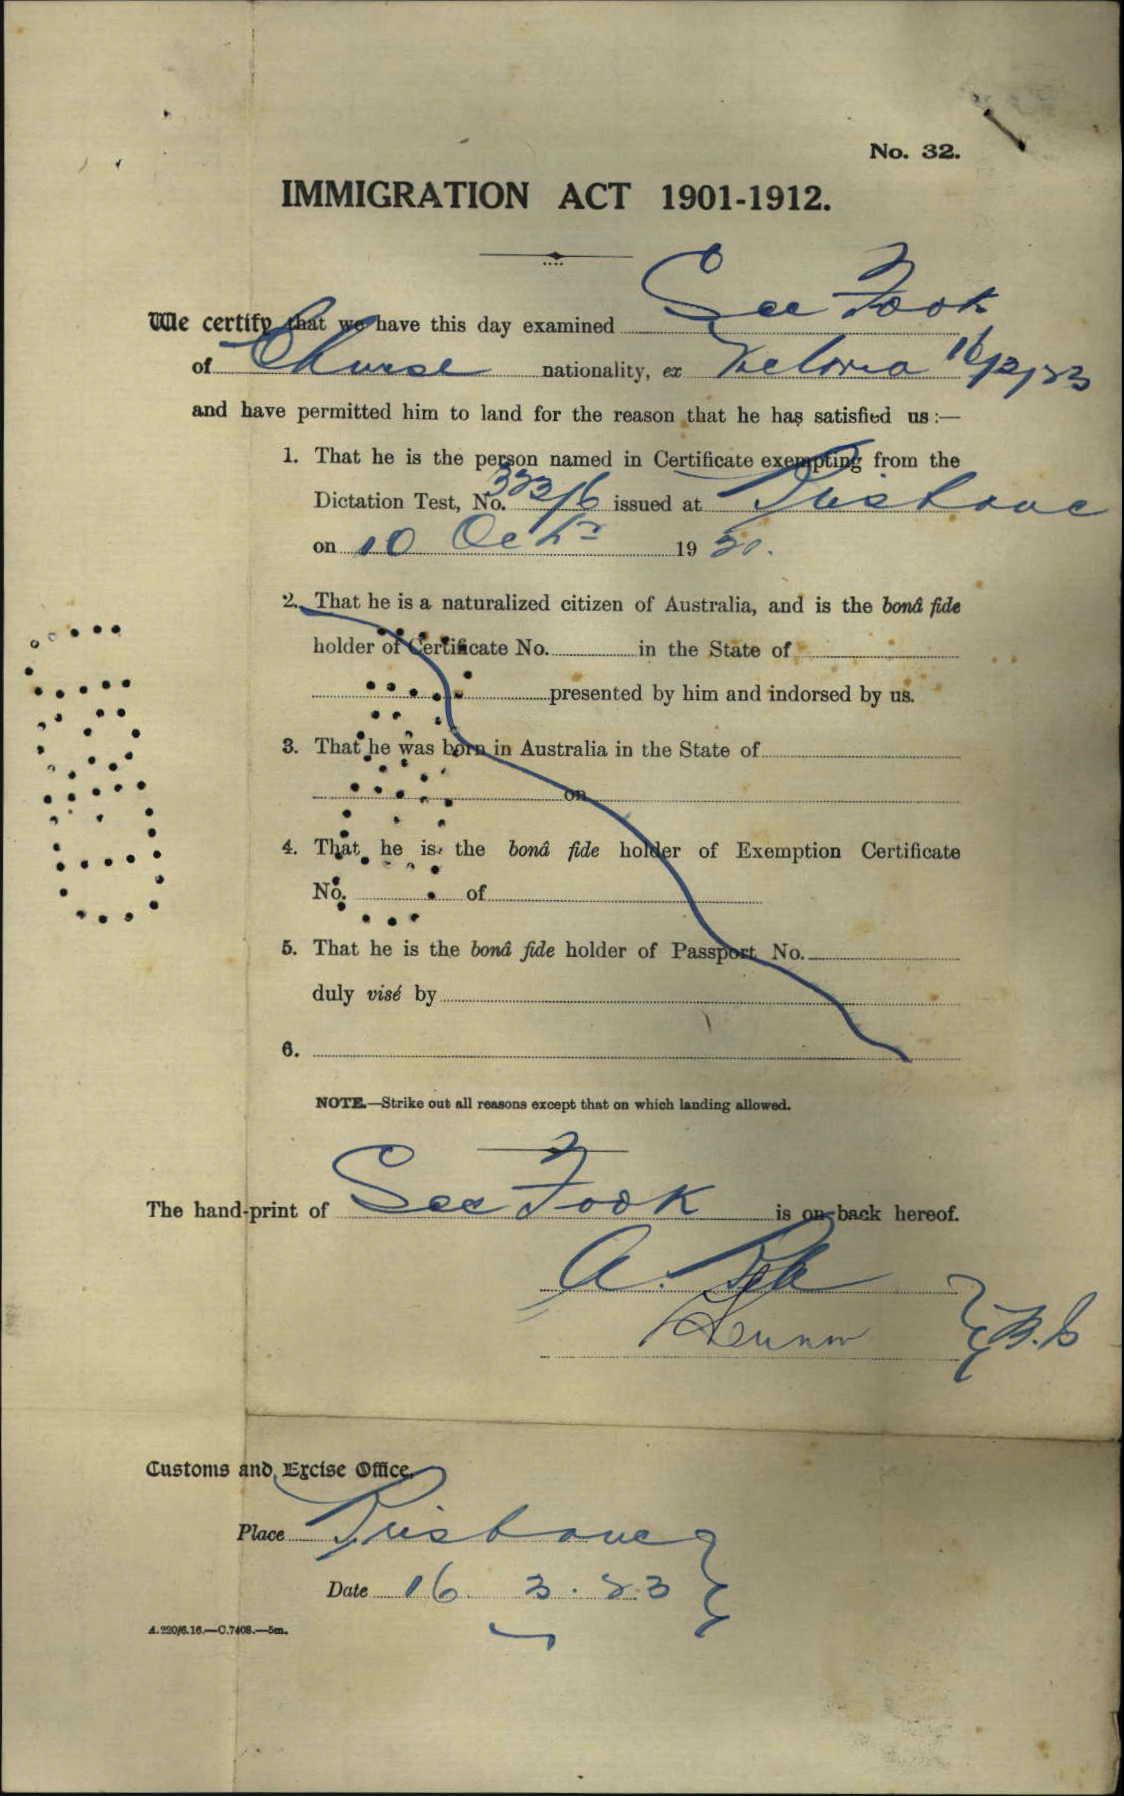 No. 32.
IMMIGRATION ACT 1901-1912.
We certify that we have this day examined See Fook
of Chinese nationality, ex Victoria 16/3/23
and have permitted him to land for the reason that he has satisfied us:—
1. That he is the person named in Certificate exempting from the
Dictation Test, No. 323/6 issued at Brisbane
on 10 Oct 19
2. That he is a naturalized citizen of Australia, and is the bonâ fide
holder of Certificate No. in the State of
presented by him and indorsed by us.
3. That he was born in Australia in the State of
on
4. That he is the bonâ fide holder of Exemption Certificate
No. of
5. That he is the bonâ fide holder of Passport No.
duly visé by
6.
NOTE.—Strike out all reasons except that on which landing allowed.
The hand-print of See Fook is on back hereof.
A.
Customs and Excise Office.
Place Brisbane
Date 16. 3. 23
A.220/6.16.—C.7408.—5m.